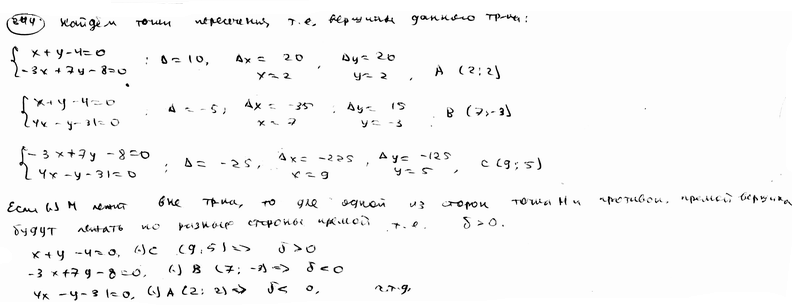 244. Найдём точки пересечения, т.е. вершины данного тр-ка:
{ x+y-4=0
-3x+7y-8=0 : Δ=10, Δx= 20, Δy=20
x=2 y=2, A (2;2)
{ x+y-4=0
4x-y-31=0 : Δ=-5; Δx= -35; Δy= 15
x=7 y=-3 B (7;-3)
{ -3x+7y-8=0
4x-y-31=0 ; Δ= -25, Δx= -225, Δy= -125
x=9 y=5, C (9;5)
Если (·) M лежит вне тр-ка, то для одной из сторон точка M и противоп. прямой вершина
будут лежать по разные стороны прямой т.е. δ>0.
x+y-4=0, (·) C (9;5) => δ>0
-3x+7y-8=0, (·) B (7;-3) => δ<0
4x-y-31=0, (·) A (2;2) => δ<0, ч.т.д.